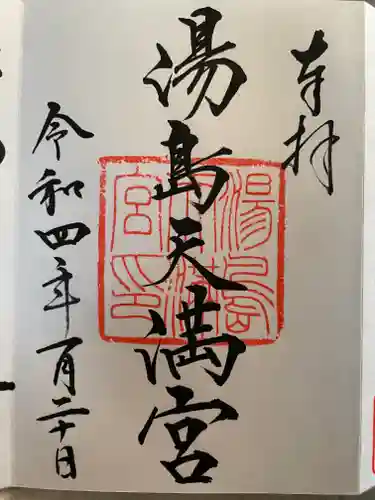 奉拝
湯島天満宮
令和四年一月二十日
湯島天満宮印